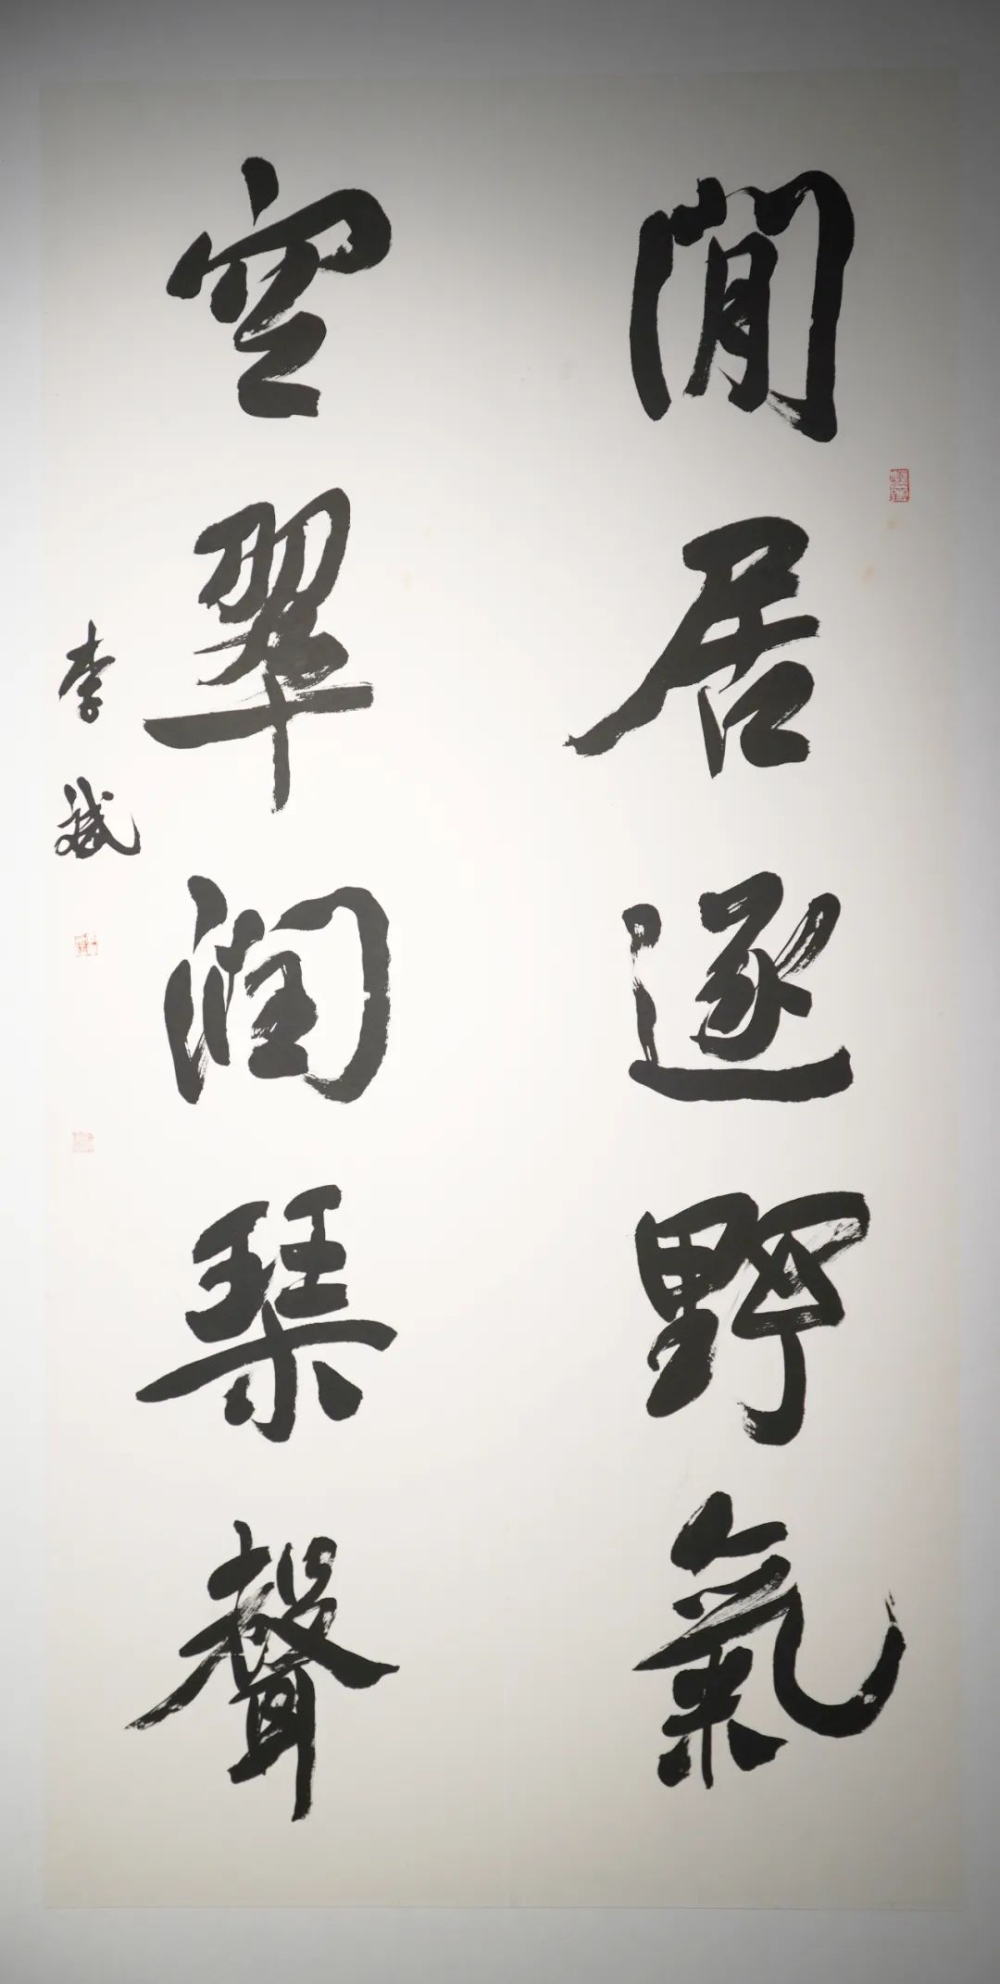 閒居遂野氣
空翠潤琴聲
李斌